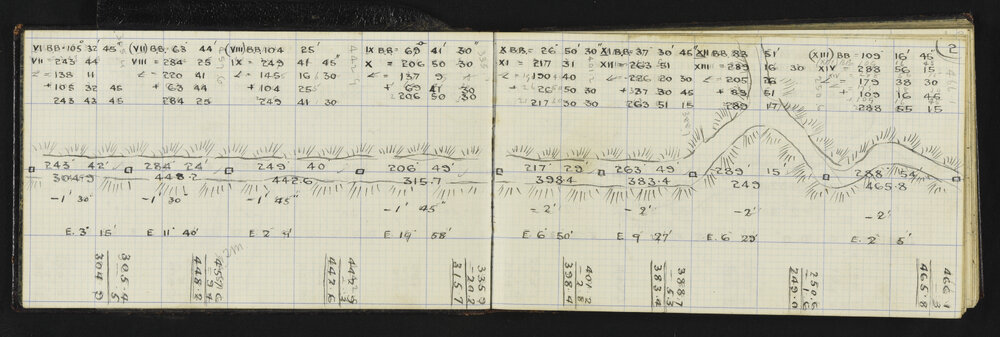 VI BB = 105° 32' 45"
VII = 243 44
∠ = 138 11
+ 105 32 45
243 43 45
(VII) BB = 63° 44'
VIII = 284 25
∠ = 220 41
+ 63 44
284 25
(VIII) BB 104 25'
IX = 249 41 45"
∠ = 145 16 30
+ 104 25
249 41 30
IX BB = 69° 41' 30"
X = 206 50 30
∠ = 137 9
+ 69 41 30
206 50 30
X BB = 26° 50' 30"
XI = 217 31
∠ = 190 40
+ 26 50 30
217 30 30
XI BB = 37° 30' 45"
XII = 263 51
∠ = 226 20 30
+ 37 30 45
263 51 15
XII BB 83 51'
XIII = 289 16 30
∠ = 205 26
+ 83 51
289 17
(XIII) BB = 109° 16' 45"
XIV = 288 56 15
∠ = 179 38 30
+ 109 16 45
288 55 15
2
243° 42'
304.9
284° 24'
448.2
249 40
442.6
206° 49'
315.7
217 29'
398.4
263 49
383.4
289 15'
249
288 54'
465.8
-1' 30"
-1' 30
-1' 45"
-1' 45"
-2'
-2'
-2'
-2'
E. 3° 15'
E 11° 40'
E. 2° 9'
E. 19° 58'
E 6° 50'
E 9° 27'
E. 6 29'
E. 2° 5'
305.4
.5
304.9
448.2
442.9
.3
442.6
335.9
20.2
315.7
401.2
2.8
398.4
388.7
5.3
383.4
250.6
1.6
249.0
466.1
.3
465.8